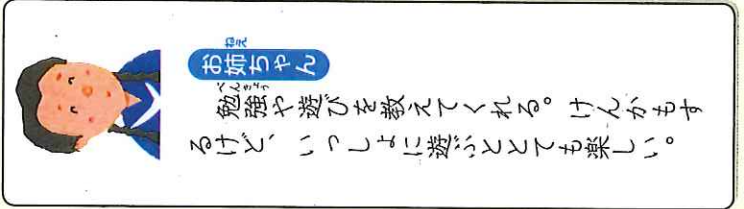 お姉ちゃん
ねえ
勉強や遊びを教えてくれる。けんかもす
べんきょう
るけど、いっしょに遊ぶととても楽しい。